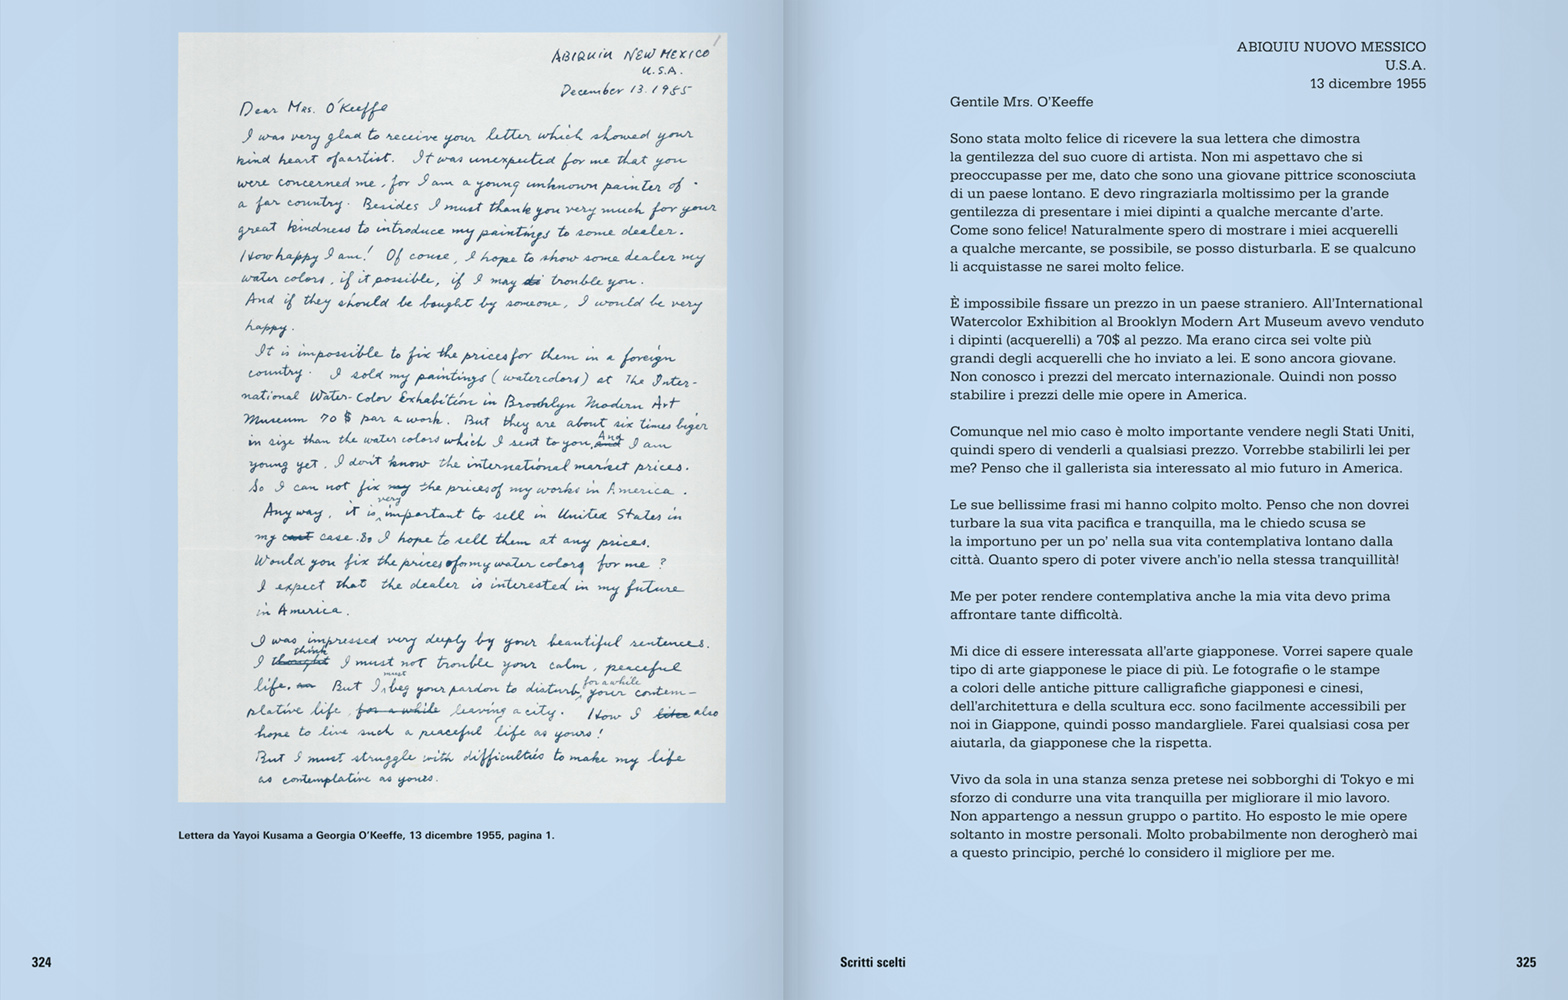 ABIQUIU NEW MEXICO
U.S.A.
December 13. 1955
Dear Mrs. O'Keeffe
I was very glad to receive your letter which showed your
kind heart of a artist. It was unexpected for me that you
were concerned me, for I am a young unknown painter of
a far country. Besides I must thank you very much for your
great kindness to introduce my paintings to some dealer.
How happy I am! Of couse, I hope to show some dealer my
water colors, if it possible, if I may trouble you.
And if they should be bought by someone, I would be very
happy.
It is impossible to fix the prices for them in a foreign
country. I sold my paintings (watercolors) at The Inter-
national Water-Color Exhabition in Brooklyn Modern Art
Museum 70 $ par a work. But they are about six times biger
in size than the water colors which I sent to you. And I am
young yet. I don't know the international market prices.
So I can not fix my the prices of my works in America.
Anyway, it is very important to sell in United States in
my case. So I hope to sell them at any prices.
Would you fix the prices of my water colors for me?
I expect that the dealer is interested in my future
in America.
I was impressed very deeply by your beautiful sentences.
I thought think I must not trouble your calm, peaceful
life. But I must beg your pardon to disturb for a while your contem-
plative life, for a while leaving a city. How I also
hope to live such a peaceful life as yours!
But I must struggle with difficulties to make my life
as contemplative as yours.
Lettera da Yayoi Kusama a Georgia O'Keeffe, 13 dicembre 1955, pagina 1.
324
ABIQUIU NUOVO MESSICO
U.S.A.
13 dicembre 1955
Gentile Mrs. O'Keeffe
Sono stata molto felice di ricevere la sua lettera che dimostra
la gentilezza del suo cuore di artista. Non mi aspettavo che si
preoccupasse per me, dato che sono una giovane pittrice sconosciuta
di un paese lontano. E devo ringraziarla moltissimo per la grande
gentilezza di presentare i miei dipinti a qualche mercante d'arte.
Come sono felice! Naturalmente spero di mostrare i miei acquerelli
a qualche mercante, se possibile, se posso disturbarla. E se qualcuno
li acquistasse ne sarei molto felice.
È impossibile fissare un prezzo in un paese straniero. All'International
Watercolor Exhibition al Brooklyn Modern Art Museum avevo venduto
i dipinti (acquerelli) a 70$ al pezzo. Ma erano circa sei volte più
grandi degli acquerelli che ho inviato a lei. E sono ancora giovane.
Non conosco i prezzi del mercato internazionale. Quindi non posso
stabilire i prezzi delle mie opere in America.
Comunque nel mio caso è molto importante vendere negli Stati Uniti,
quindi spero di venderli a qualsiasi prezzo. Vorrebbe stabilirli lei per
me? Penso che il gallerista sia interessato al mio futuro in America.
Le sue bellissime frasi mi hanno colpito molto. Penso che non dovrei
turbare la sua vita pacifica e tranquilla, ma le chiedo scusa se
la importuno per un po' nella sua vita contemplativa lontano dalla
città. Quanto spero di poter vivere anch'io nella stessa tranquillità!
Me per poter rendere contemplativa anche la mia vita devo prima
affrontare tante difficoltà.
Mi dice di essere interessata all'arte giapponese. Vorrei sapere quale
tipo di arte giapponese le piace di più. Le fotografie o le stampe
a colori delle antiche pitture calligrafiche giapponesi e cinesi,
dell'architettura e della scultura ecc. sono facilmente accessibili per
noi in Giappone, quindi posso mandargliele. Farei qualsiasi cosa per
aiutarla, da giapponese che la rispetta.
Vivo da sola in una stanza senza pretese nei sobborghi di Tokyo e mi
sforzo di condurre una vita tranquilla per migliorare il mio lavoro.
Non appartengo a nessun gruppo o partito. Ho esposto le mie opere
soltanto in mostre personali. Molto probabilmente non derogherò mai
a questo principio, perché lo considero il migliore per me.
Scritti scelti
325